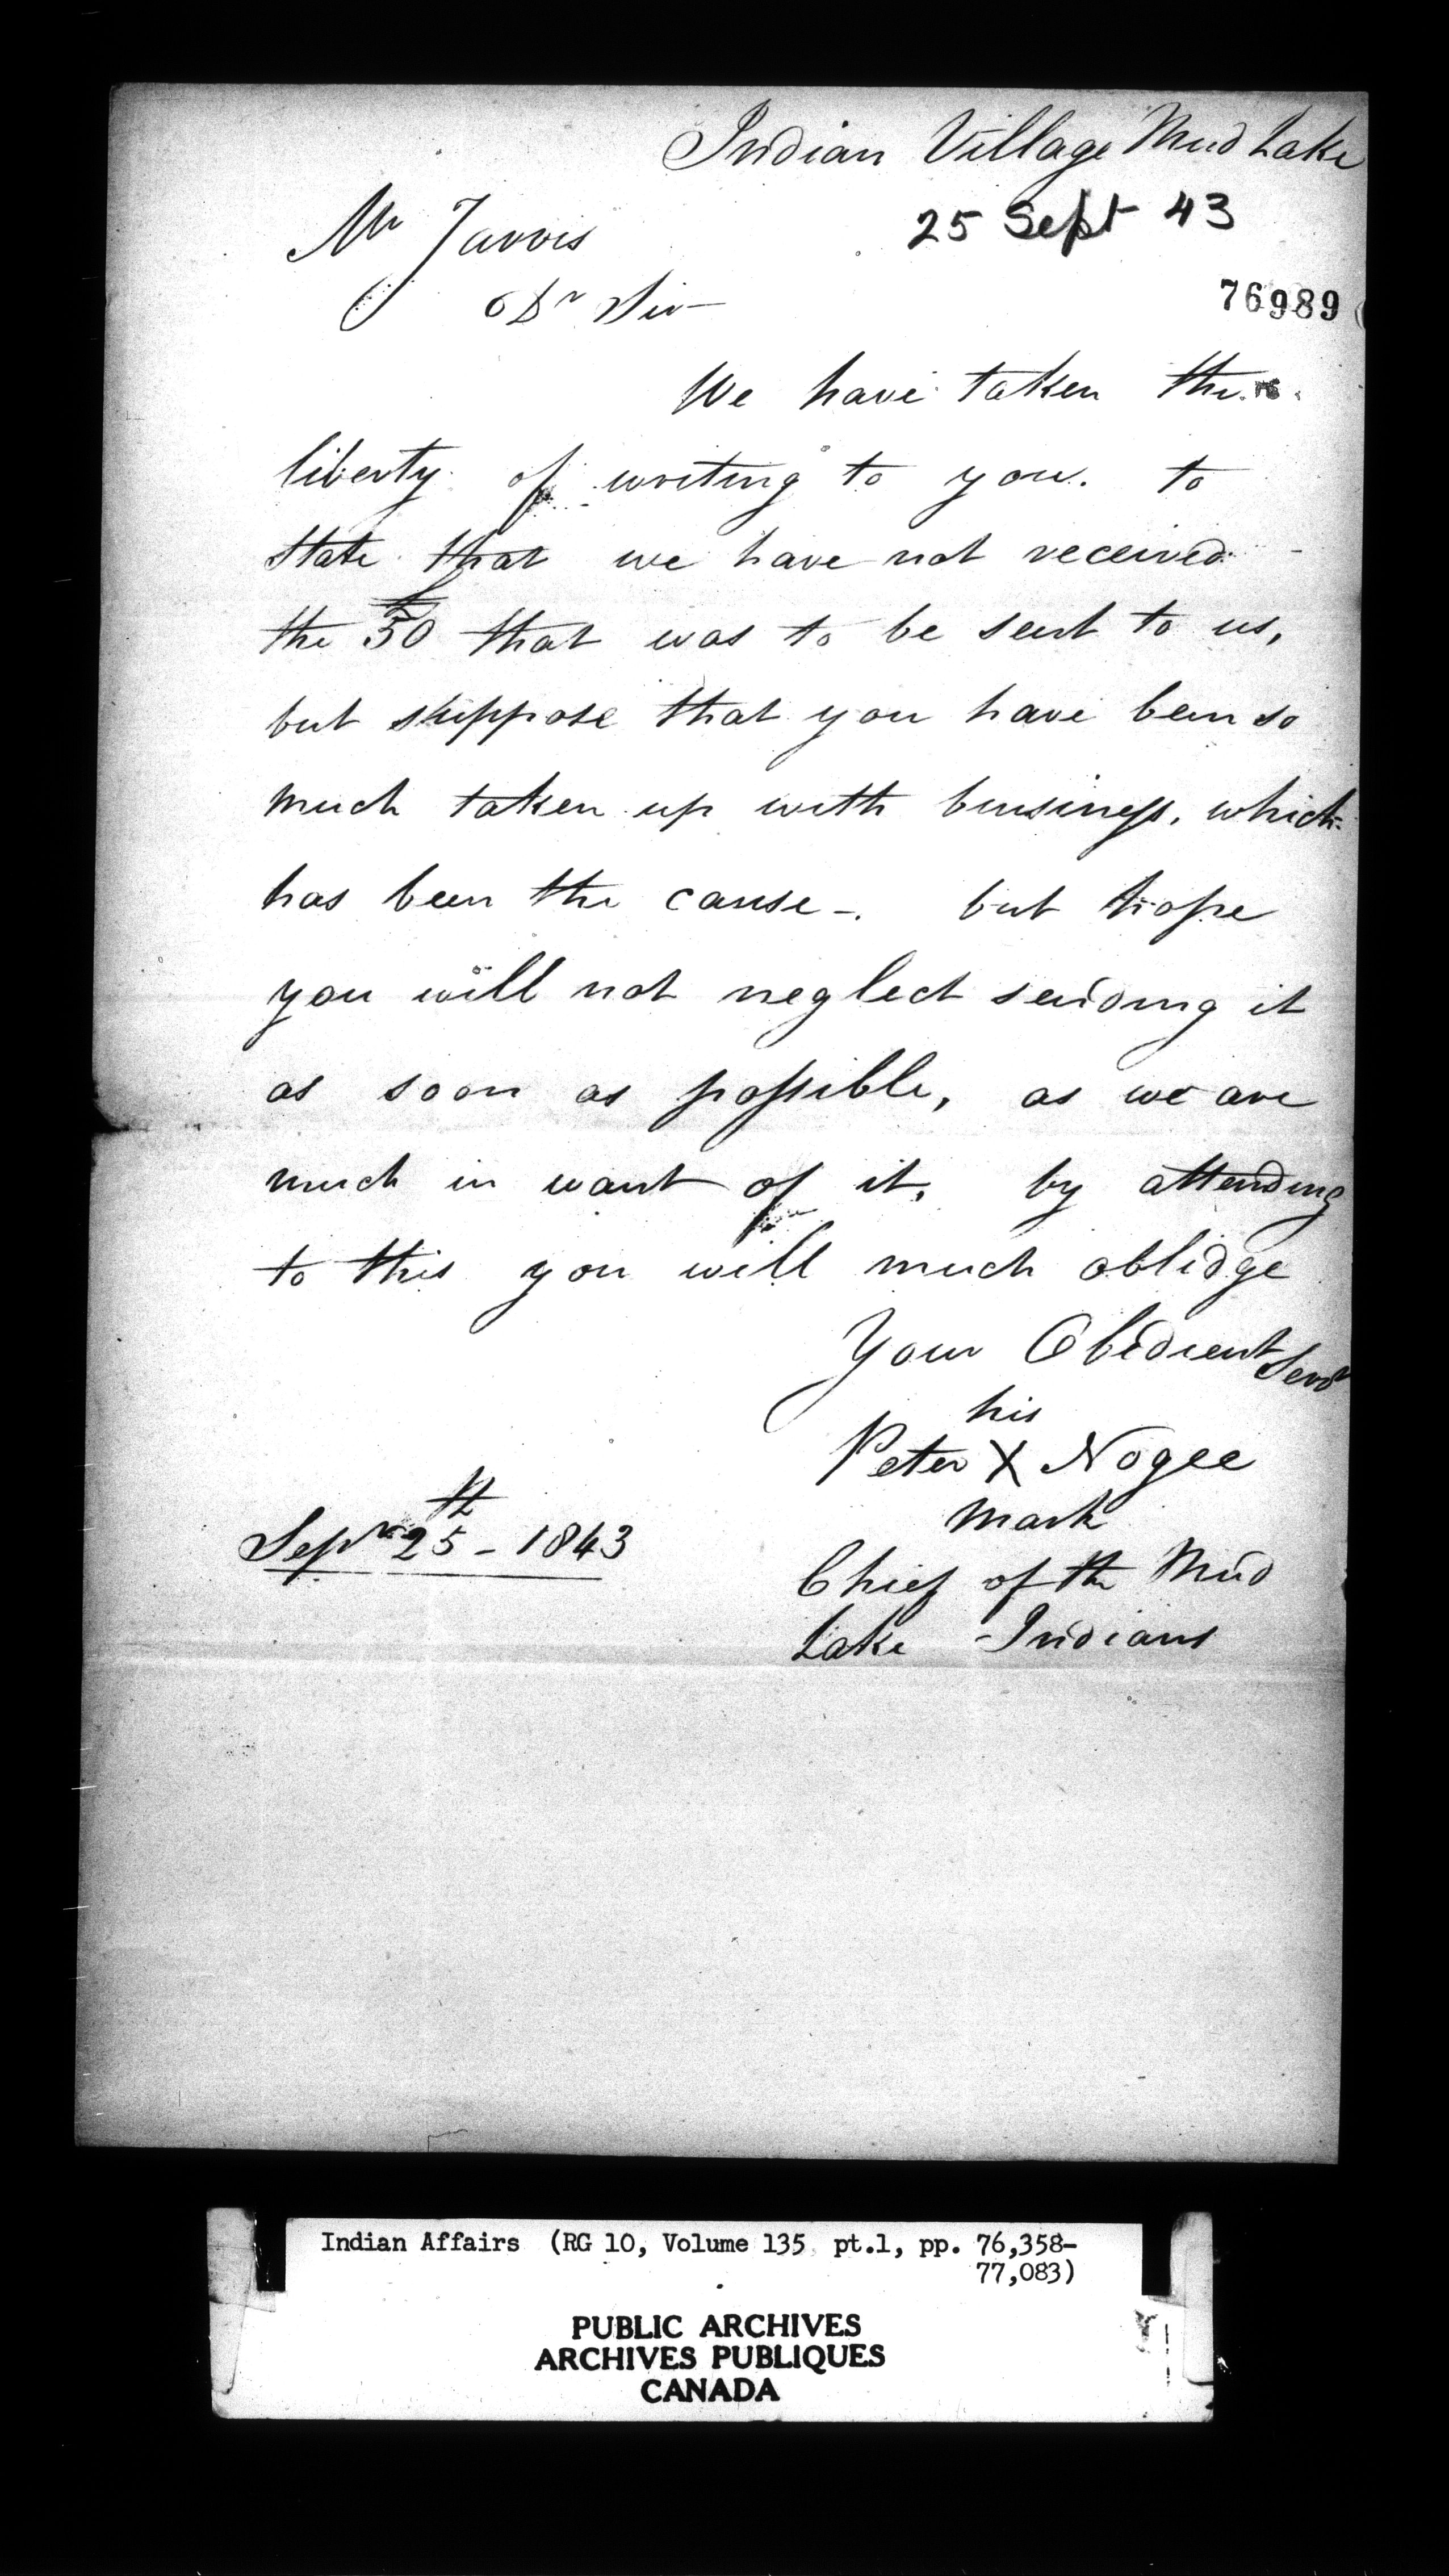 Indian Village Mud Lake
25 Sept 43
Mr Jarvis
Dr Sir
76989
We have taken the
liberty of writing to you. to
state that we have not received
the £50 that was to be sent to us,
but suppose that you have been so
much taken up with buisiness, which
has been the cause -. but hope
you will not neglect sending it
as soon as possible, as we are
much in want of it, by attending
to this you will much oblidge
Your Obedient Servt
his
Peter X Nogee
mark
Sepr 25th - 1843
Chief of the Mud
Lake Indians
Indian Affairs (RG 10, Volume 135 pt.1, pp. 76,358-
77,083)
PUBLIC ARCHIVES
ARCHIVES PUBLIQUES
CANADA